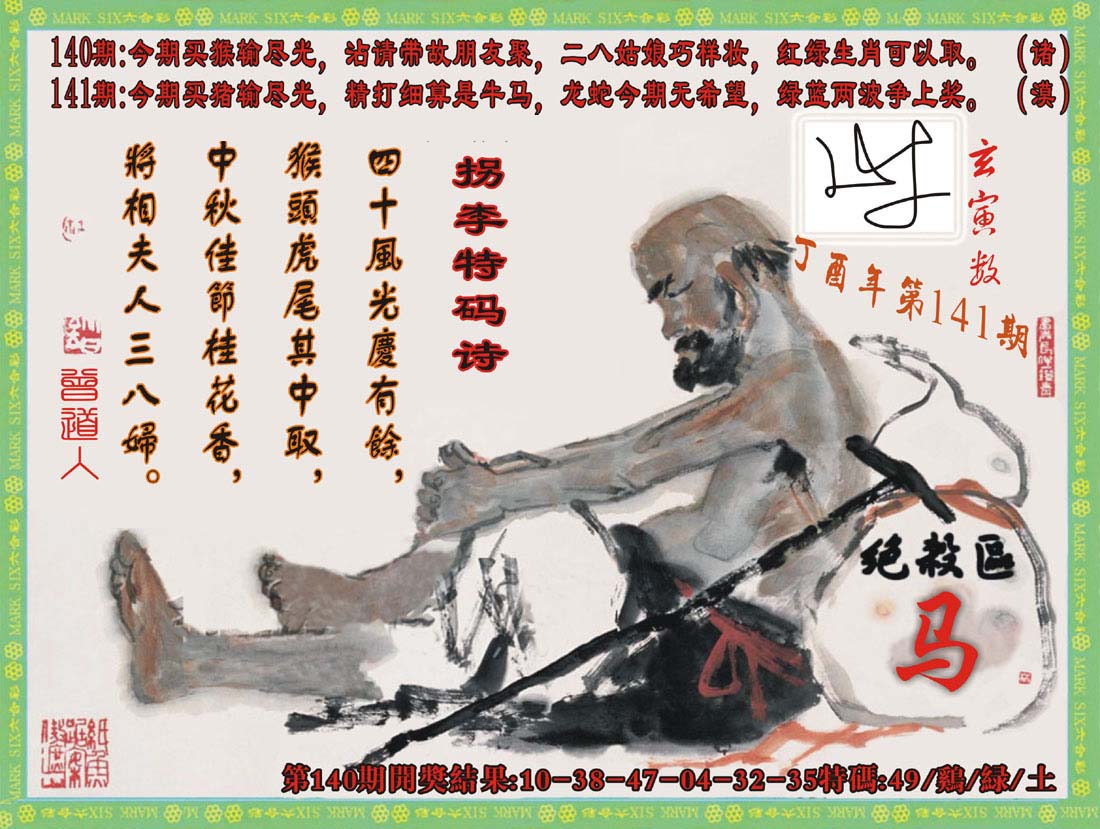 140期:今期买猴输尽光，沾请带故朋友聚，二八姑娘巧样妆，红绿生肖可以取。 (诸)
141期:今期买猪输尽光，精打细算是牛马，龙蛇今期无希望，绿蓝两波争上奖。 (漠)
拐李特码诗
四十風光慶有餘，
猴頭虎尾其中取，
中秋佳節桂花香，
將相夫人三八婦。
玄寅数
丁酉年第141期
曾道人
绝殺區
马
第140期開獎結果:10-38-47-04-32-35特碼:49/鷄/緑/土
MARK SIX六合彩